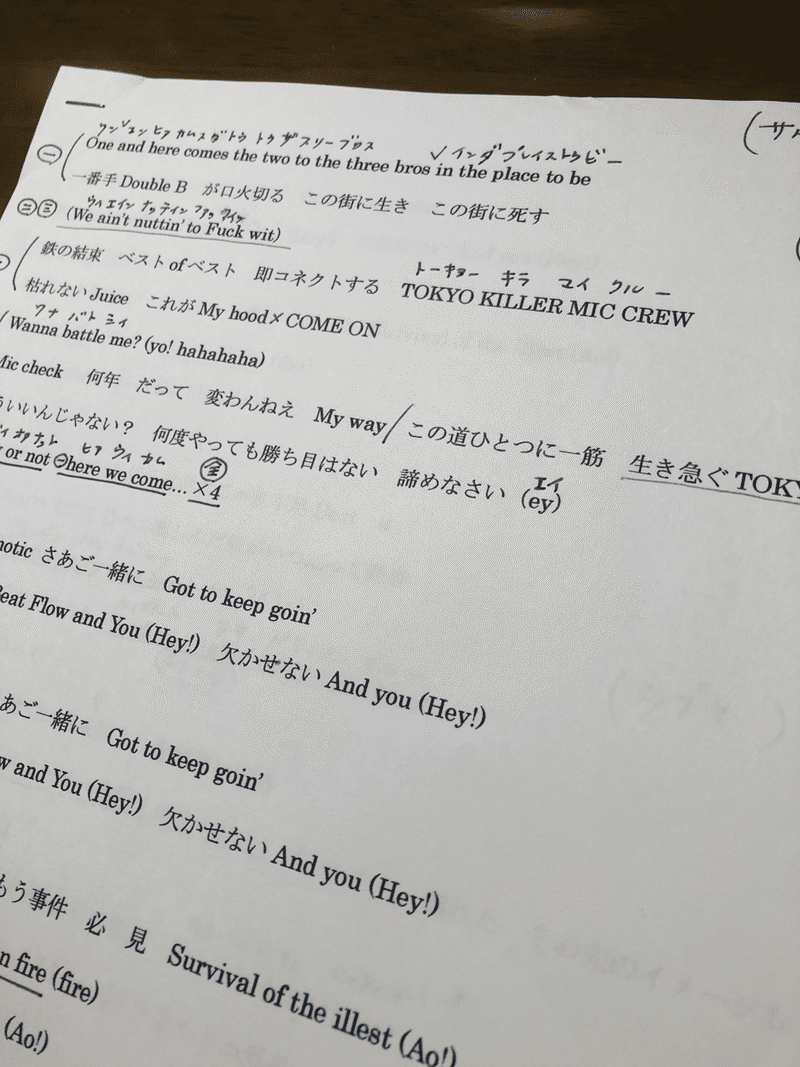 (サ
ワン エン ヒア カムズ ダ トゥ トゥ ザ スリー ブロス ✓インダプレイストゥビー
㊀ One and here comes the two to the three bros in the place to be
一番手 Double B が口火切る この街に生き この街に死す
ウィ エイン ナッティン ファッ ウィッ
㊁㊂ (We ain't nuttin' to Fuck wit)
鉄の結束 ベスト of ベスト 即コネクトする
トーキョー キラ マイ クルー
TOKYO KILLER MIC CREW
枯れない Juice これが My hood×COME ON
ワナ バトミィ
Wanna battle me? (yo! hahahaha)
Mic check 何年 だって 変わんねえ My way/この道ひとつに一筋 生き急ぐ TOKY
いいんじゃない? 何度やっても勝ち目はない 諦めなさい (ey)
エイ
ヒア ウィ カム
or not ㊀here we come… ×4
全
notic さあご一緒に Got to keep goin'
Beat Flow and You (Hey!) 欠かせない And you (Hey!)
あご一緒に Got to keep goin'
w and You (Hey!) 欠かせない And you (Hey!)
もう事件 必 見 Survival of the illest (Ao!)
n fire (fire)
(Ao!)